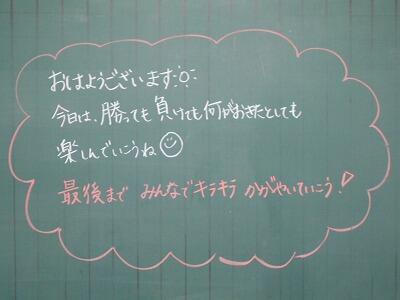 おはようございます
今日は、勝っても負けても何がおきたとしても
楽しんでいこうね
最後まで みんなでキラキラ かがやいていこう！